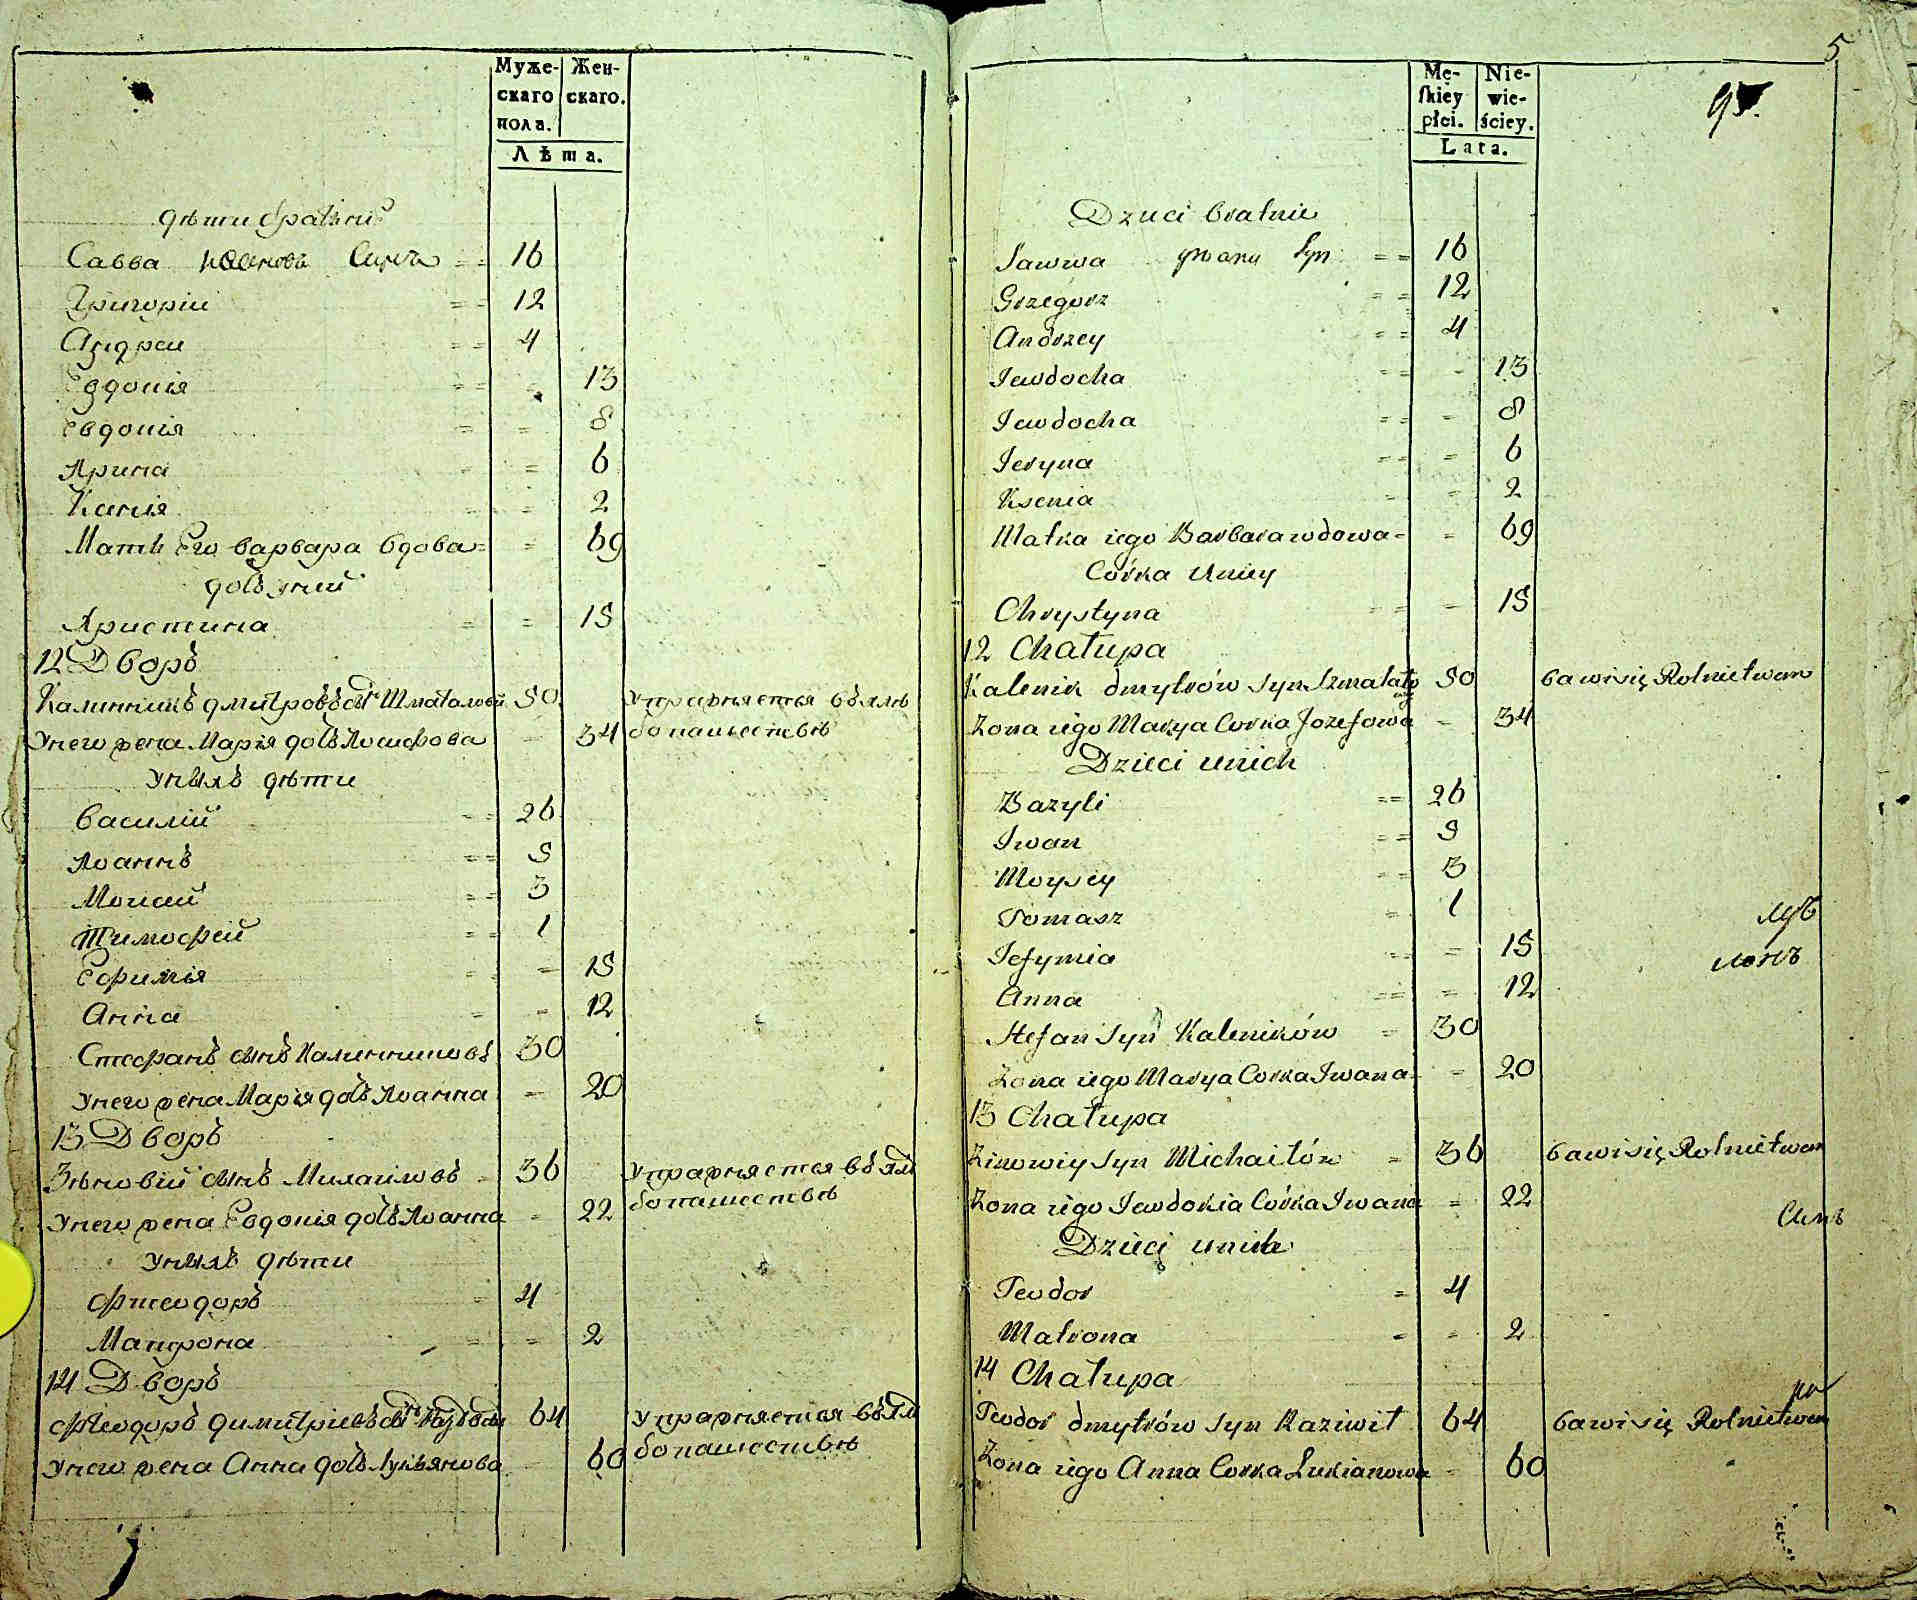 Муже- Жен-
скаго скаго.
пола.
Лѣта.
дѣти братни
Савва Іоанновъ Сынъ = = 16
Григорій = = 12
Андреи = = 4
Евдокія = - 13
Евдокія = = 8
Ярина - = 6
Ксенія - - 2
Мать Его варвара вдова = = 69
дочь
Христина = = 18
12 Дворъ
Калинникъ дмитровъ сынъ 50 упражняется въ хлѣ
Унего жена Марія дочь Іосифова - 34 бопашествѣ
Унихъ дѣти
Василій = = 26
Іоаннъ = = 9
Моисей = = 3
Тимофей = = 1
Ефимія = - 18
Анна = - 12
Стефанъ сынъ Калинниковъ 30
Унего жена Марія дочь Іоанна - 20
13 Дворъ
Зѣновій сынъ Михаиловъ - 36 упражняется въ хлѣ
Унего жена Евдокія дочь Іоанна - 22 бопашествѣ
Унихъ дѣти
Фтеодоръ = 4
Матрона = - 2
14 Дворъ
Фтеодоръ димитріевъ сынъ 64 упражняется въ хлѣ
Унего жена Анна дочь Лукьянова - 60 бопашествѣ
5
Mę- Nie-
skiey wie-
płci. ściey.
Lata.
95.
Dzieci bratnie
Sawwa Jwana Syn = = 16
Grzegorz = = 12
Andrzey = = 4
Jewdocha = = - 13
Jewdocha = = - 8
Jeryna = = - 6
Ksenia - - 2
Matka iego Barbara wdowa = - 69
Corka Uniey
Chrystyna = = - 18
12 Chałupa
Kalenik dmytrów syn 50 bawi się Rolnictwem
Żona iego Marya Corka Jozefowa - 34
Dzieci unich
Bazyli = = 26
Jwan = = 9
Moysey - = 3
Tomasz = 1
Jefymia = = - 18
Anna = = - 12
Stefan Syn Kaleników = 30
Żona iego Marya Corka Jwana - - 20
13 Chałupa
Zinowiy Syn Michaiłów = 36 bawi się Rolnictwem
Żona iego Jewdokia Córka Jwana - 22
Сынъ
Dzieci unich
Teodor = 4
Matrona - - 2
14 Chałupa
Teodor dmytrów syn Raziwił 64 bawi się Rolnictwem
Żona iego Anna Corka Lukianowa - 60